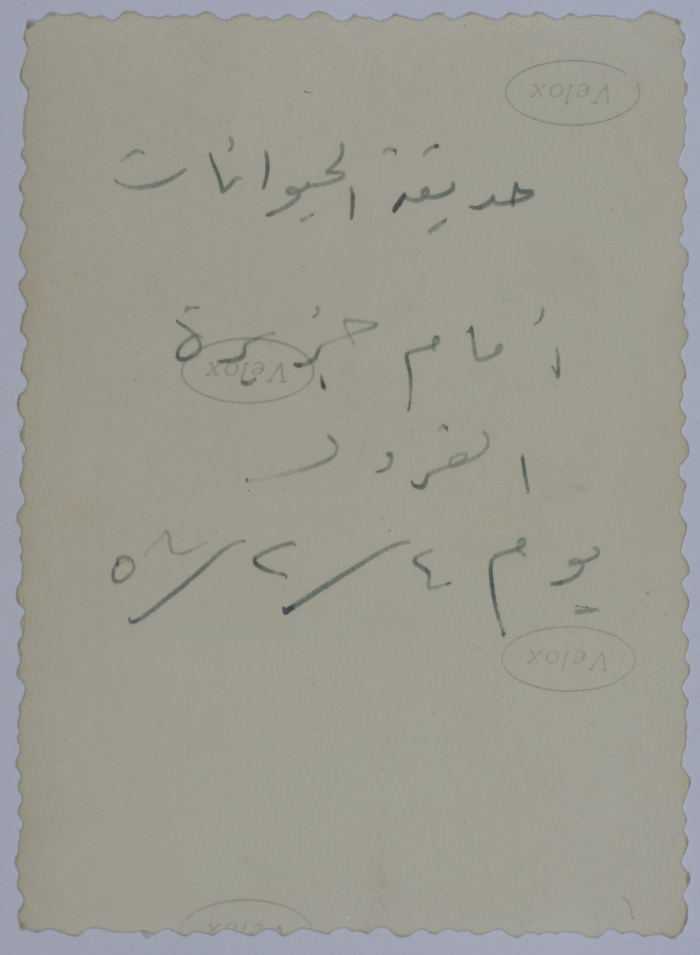 Velox
حديقة الحيوانات
أمام جزيرة
Velox
القرود
يوم ٤/٢/
Velox
Velox